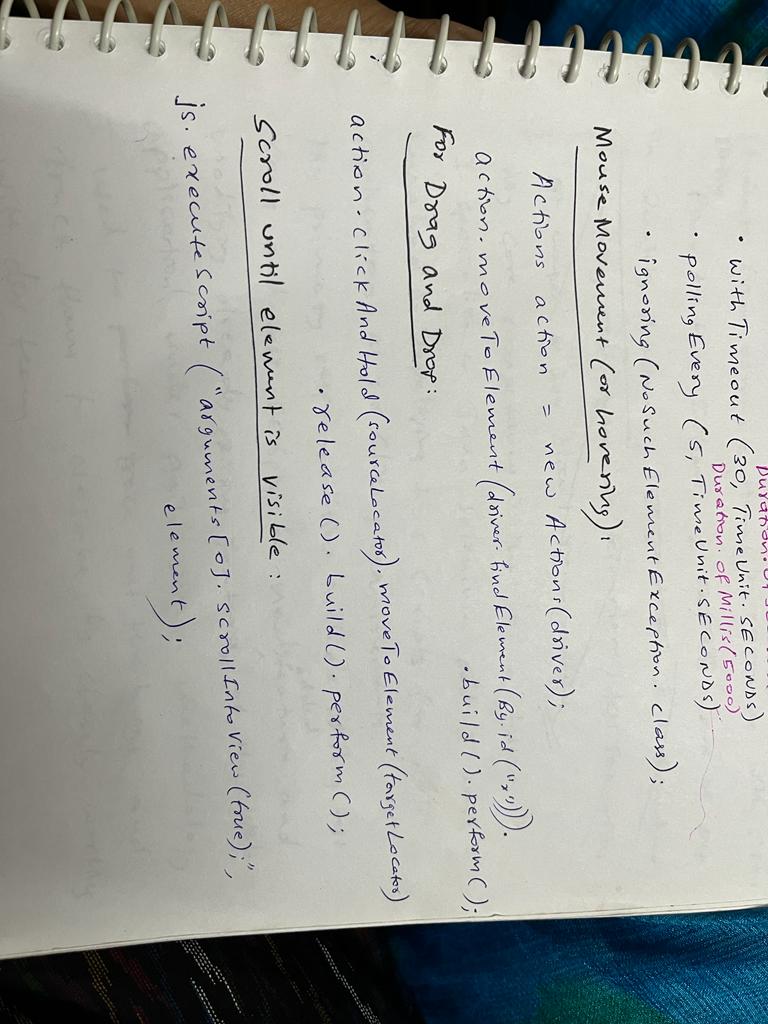 Duration. of
• with Timeout (30, TimeUnit. SECONDS)
Duration. of Millis(5000)
• pollingEvery (5, TimeUnit.SECONDS)
• ignoring (NoSuchElementException. class);
Mouse Movement (or hovering):
Actions action = new Actions(driver);
action. moveToElement (driver. findElement (By. id ("x"))).
.build(). perform();
For Drag and Drop:
action. clickAndHold (sourceLocator). moveToElement (targetLocator)
. release(). build(). perform();
Scroll until element is visible :
js. executeScript ("arguments[0]. scrollIntoView (true);",
element);